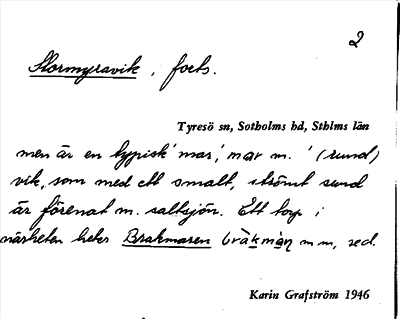 2
Stormyravik, forts.
Tyresö sn, Sotholms hd, Sthlms län
men är en typisk 'mar', mar m. '(rund)
vik, som med ett smalt, strömt sund
är förenat m. saltsjön. Ett torp i
närheten heter Brakmaren bràkmàn mm, red.
Karin Grafström 1946